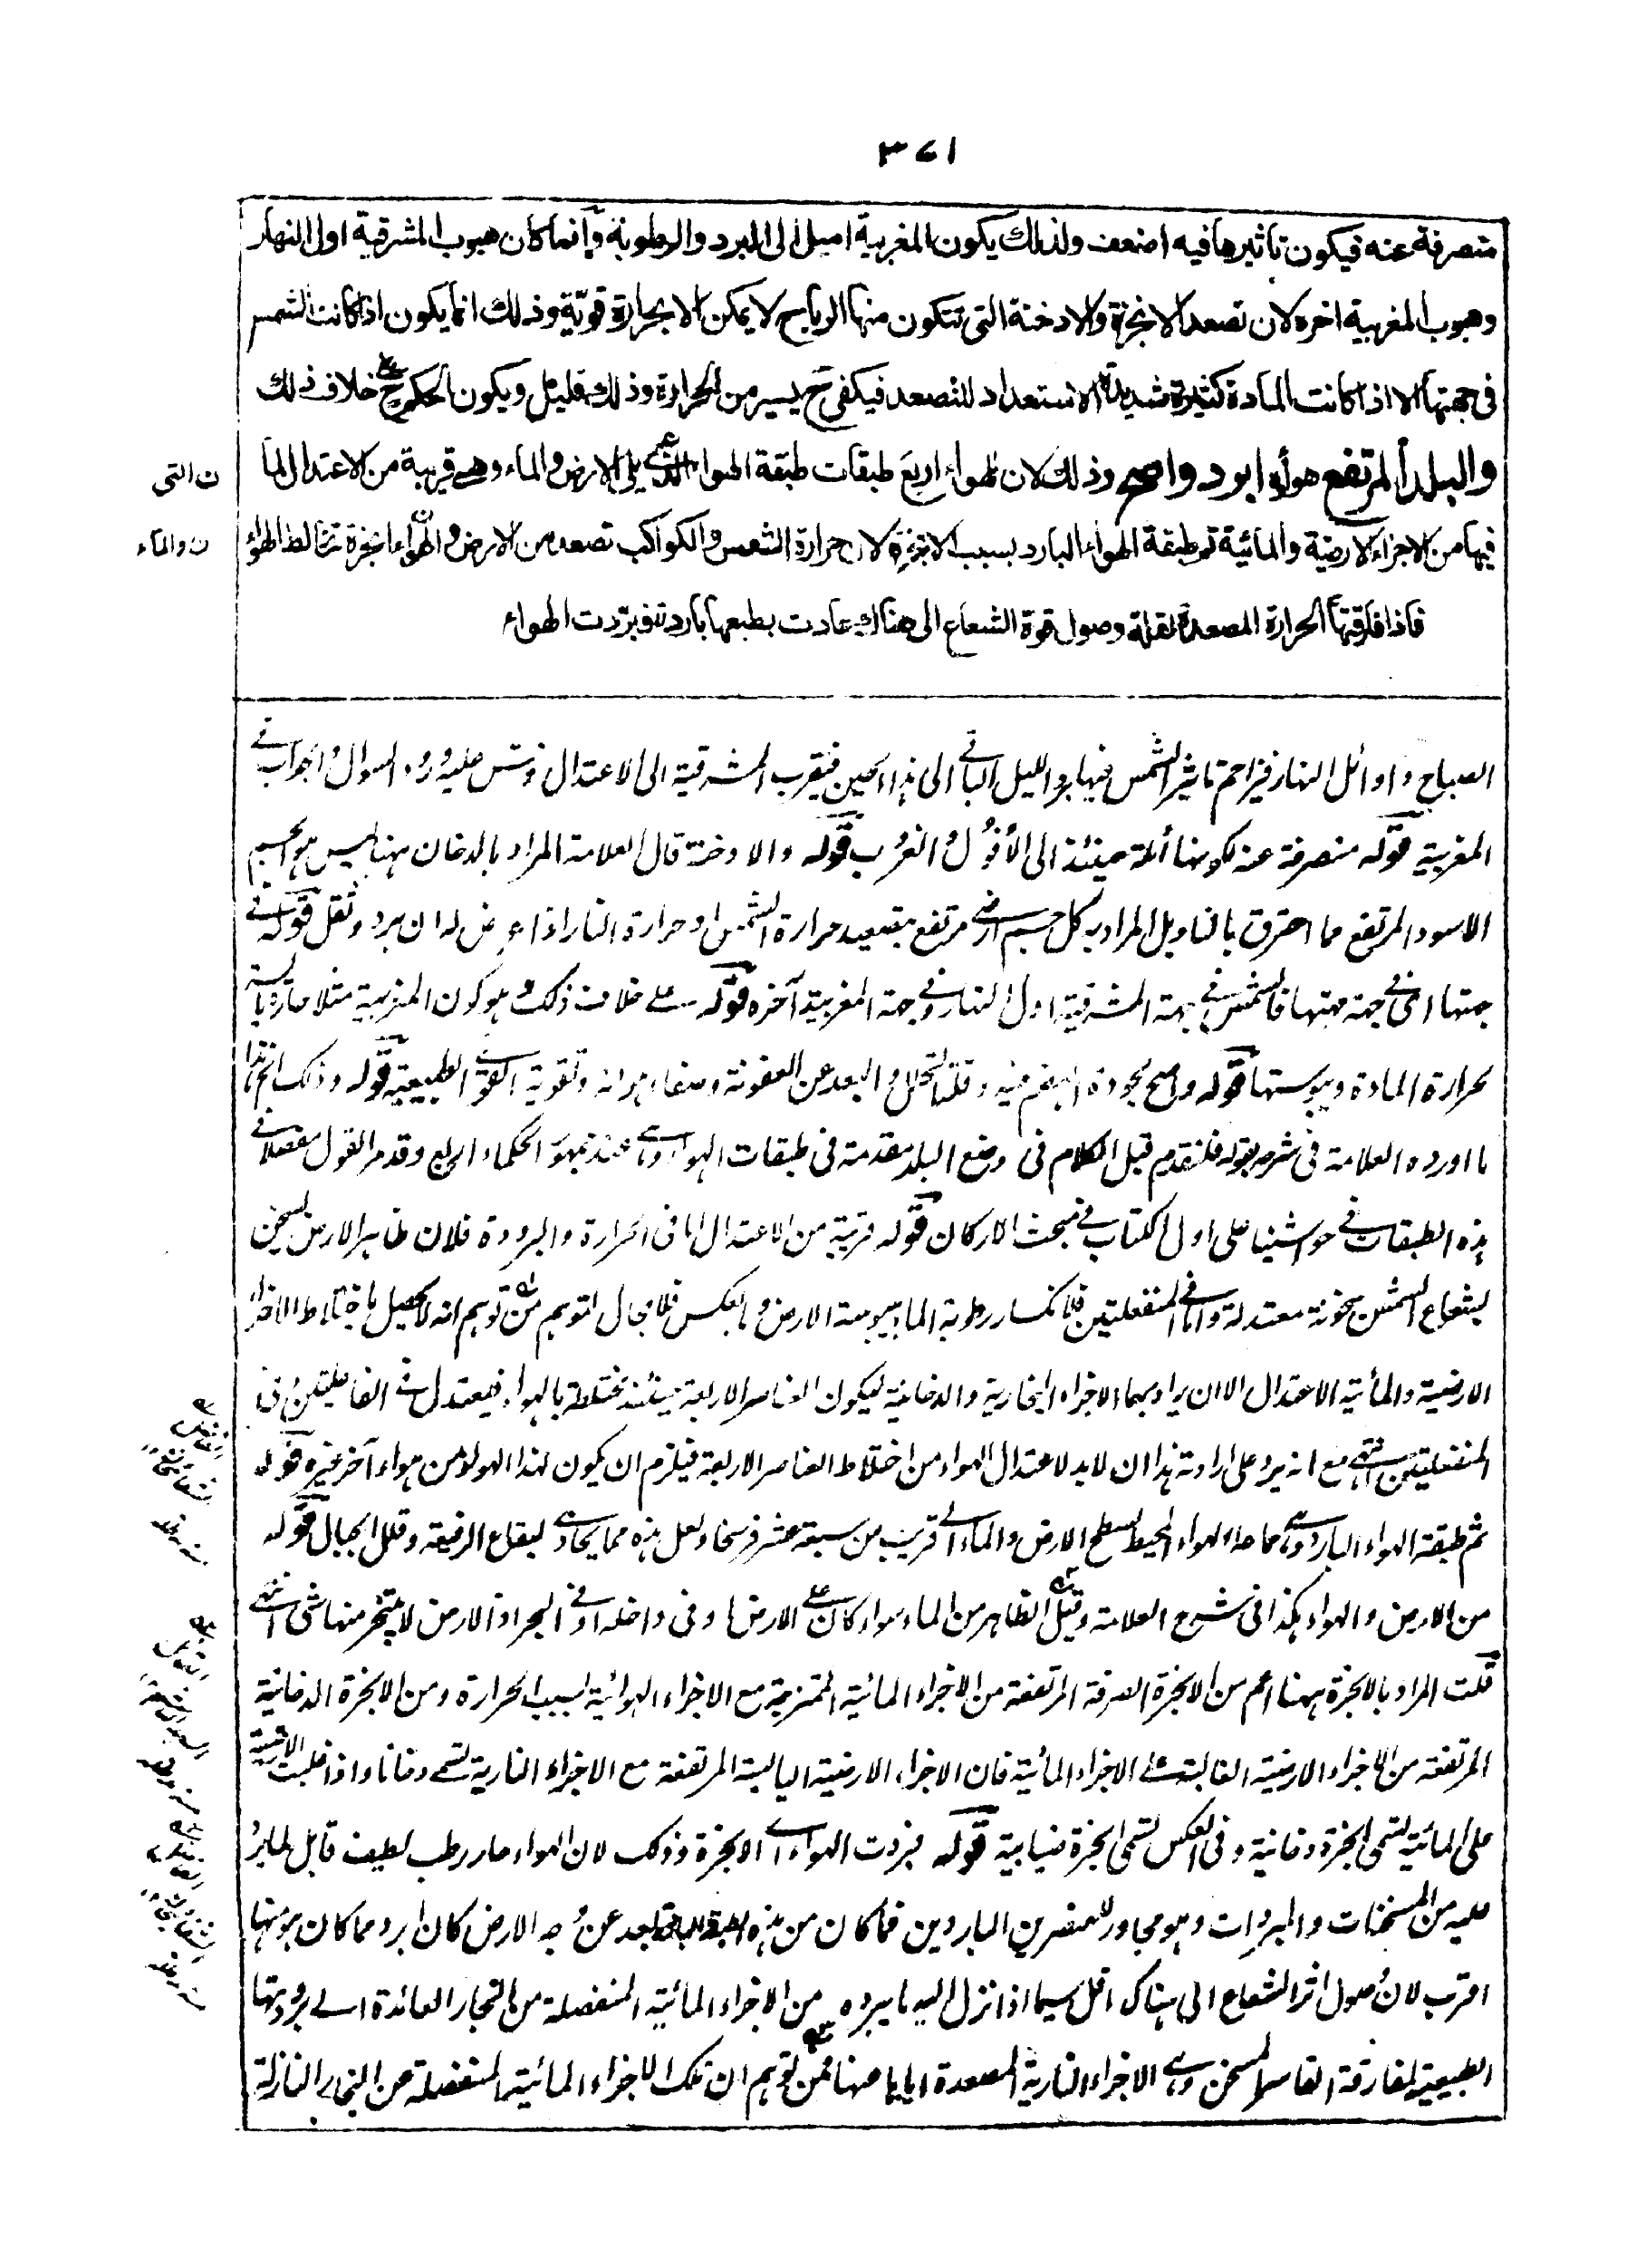 ٣٧١
متصرفة عنه فيكون تاثيرها فيه اضعف ولذلك يكون المغربية اميل الى البرد والرطوبة وانما كان هبوب المشرقية اول النهار
وهبوب المغربية اخره لان تصعد الابخرة والادخنة التى تتكون منها الرياح لا يمكن الا بحرارة قوية وذلك انما يكون اذا كانت الشمس
فى جهتها الا اذا كانت المادة كثيرة شديدة الاستعداد للتصعد فيكفى ح يسير من الحرارة وذلك قليل ويكون الحكم ح على خلاف ذلك
والبلد المرتفع هوأه ابرد واصح وذلك لان للهواء اربع طبقات طبقة الهواء الذى يلى الارض والماء وهى قريبة من الاعتدال لما
فيها من الاجزاء الارضية والمائية ثم طبقة الهواء البارد بسبب الابخرة لان حرارة الشمس والكواكب تصعد من الارض والهواء ابخرة تخالط الهواء
فاذا فارقتها الحرارة المصعدة لقلة وصول قوة الشعاع الى هناك عادت بطبعها باردة فبردت الهواء
ن التى
ن والماء
الصباح واوائل النهار فيزاحم تاثير الشمس فيها برد الليل الباقى الى هذا الحين فيقرب المشرقية الى الاعتدال وقس عليه ورود السوال والجواب فى
المغربية قوله منصرفة عنه لكونها مائلة حينئذ الى الأفول والغروب قوله والادخنة قال العلامة المراد بالدخان ههنا ليس هو الجسم
الاسود المرتفع مما احترق بالنار بل المراد به كل جسم ارضى مرتفع بتصعيد حرارة الشمس او حرارة النار اذا عرض له ان برد وثقل قوله فى
جهتها اى فى جهة مهبها فالشمس فى جهة المشرقية اول النهار وفى جهة المغربية آخره قوله على خلاف ذلك وهو كون المغربية مثلا حارة يابسة
بحرارة المادة ويبوستها قوله واصح لجودة الهضم فيه وقلة التحلل والبعد عن العفونة وصفاء هوائه وتقوية القوى الطبيعية قوله وذلك الخ هذا
ما اورده العلامة فى شرحه بقوله فلنقدم قبل الكلام فى وضع البلد مقدمة فى طبقات الهواء وهى عند جمهور الحكماء اربع وقد مر القول مفصلا فى
هذه الطبقات فى حواشينا على اول الكتاب فى مبحث الاركان قوله قريبة من الاعتدال اما فى الحرارة والبرودة فلان ظاهر الارض يسخن
بشعاع الشمس سخونة معتدلة واما فى المنفعلتين فلانكسار رطوبة الماء بيبوسة الارض وبالعكس فلا مجال لتوهم من توهم انه لا يحصل باختلاط الاجزاء
الارضية والمائية الاعتدال الا ان يراد بهما الاجزاء البخارية والدخانية ليكون العناصر الاربعة حينئذ مختلطة بالهواء فيعتدل فى الفاعلتين وفى
المنفعلتين انتهى مع انه يرد على ارادته هذا ان لابد لاعتدال الهواء من اختلاط العناصر الاربعة فيلزم ان يكون لهذا الهواء من هواء آخر غيره قوله
ثم طبقة الهواء البارد وهى مما هذا الهواء المحيط بسطح الارض والماء الى قريب من سبعة عشر فرسخا ولعل هذه مما يحاذى البقاع الرفيعة وقلل الجبال قوله
من الارض والهواء هكذا فى شرح العلامة وقيل الظاهر من الماء سواء كان على الارض او فى داخله اذ فى البحر اذ الارض لا يتبخر منها شئ انتهى
قلت المراد بالابخرة ههنا اعم من الابخرة الصرفة المرتفعة من الاجزاء المائية الممتزجة مع الاجزاء الهوائية بسبب الحرارة ومن الابخرة الدخانية
المرتفعة من الاجزاء الارضية الغالبة على الاجزاء المائية فان الاجزاء الارضية اليابسة المرتفعة مع الاجزاء النارية تسمى دخانا واذا غلبت الارضية
على المائية تسمى ابخرة دخانية وفى العكس تسمى ابخرة ضبابية قوله فبردت الهواء اى الابخرة وذلك لان الهواء حار رطب لطيف قابل لما يرد
عليه من المسخنات والمبردات وهو مجاور للعنصرين الباردين فما كان من هذه الطبقة ابعد عن وجه الارض كان ابرد مما كان هو منها
اقرب لان وصول اثر الشعاع الى هناك اقل سيما اذا نزل اليه ما يبرده من الاجزاء المائية المنفصلة من البخار العائدة الى برودتها
الطبيعية لمفارقة القاسر المسخن وهى الاجزاء النارية المصعدة اياها عنها فمن توهم ان تلك الاجزاء المائية المنفصلة من البخار النازلة